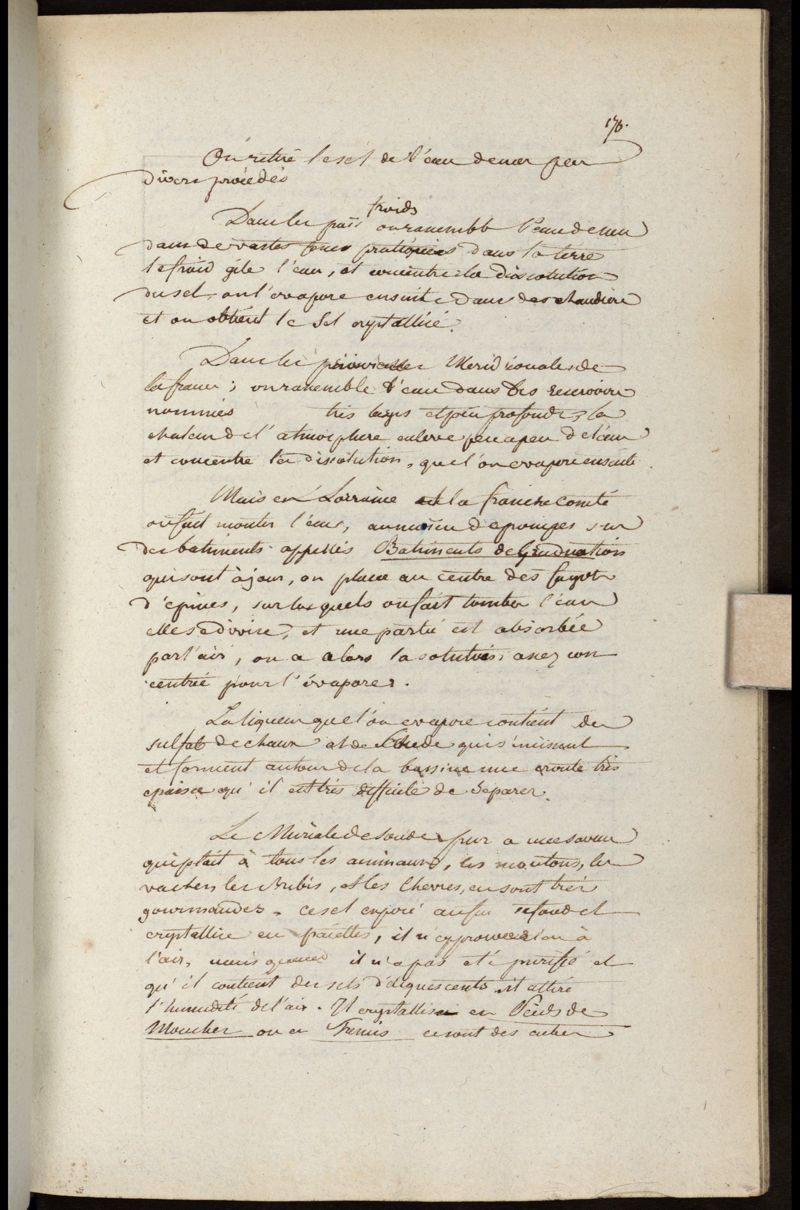 176.
On retire le sel de l'eau de mer par
divers procédés
Dans les païs froids on rassemble l'eau de mer
dans de vastes fosses pratiquées dans la terre
le froid gêle l'eau, et concentre la dissolution
du sel. on l'evapore ensuite dans des chaudiere
et on obtient le sel crystallisé.
Dans les provinces Meridionales de
la france; on rassemble l'eau dans des reservoirs
nommés très larges et peu profonds, la
chaleur de l'atmosphere enleve peu a peu de l'eau
et concentre la dissolution, que l'on evapore ensuite.
Mais en Lorraine et la franche comté
on fait monter l'eau, au moïen de pompes sur
des batiments appellés Batiments de Graduation
qui sont à jour, on place au centre des fagots
d'épines, sur lesquels on fait tomber l'eau
elle se divise, et une partie est absorbée
par l'air, on a alors la solution assez con
centrée pour l'évaporer.
La liqueur que l'on evapore contient du
sulfate de chaux et de soude qui s'unissent
et forment autour de la bassine une croute très
epaisse qu'il est très difficile de separer.
Le Muriate de soude pur a une saveur
qui plait à tous les animaux, les moutons, les
vaches les brebis, et les chevres, en sont très
gourmandes. ce sel exposé au feu se fond et
crystallise en
l'air, mais quand il n'a pas eté purifié et
qu'il contient des sels déliquescents il attire
l'humidité de l'air. Il crystallise en Pieds de
Mouches ou en Tremis ce sont des cubes